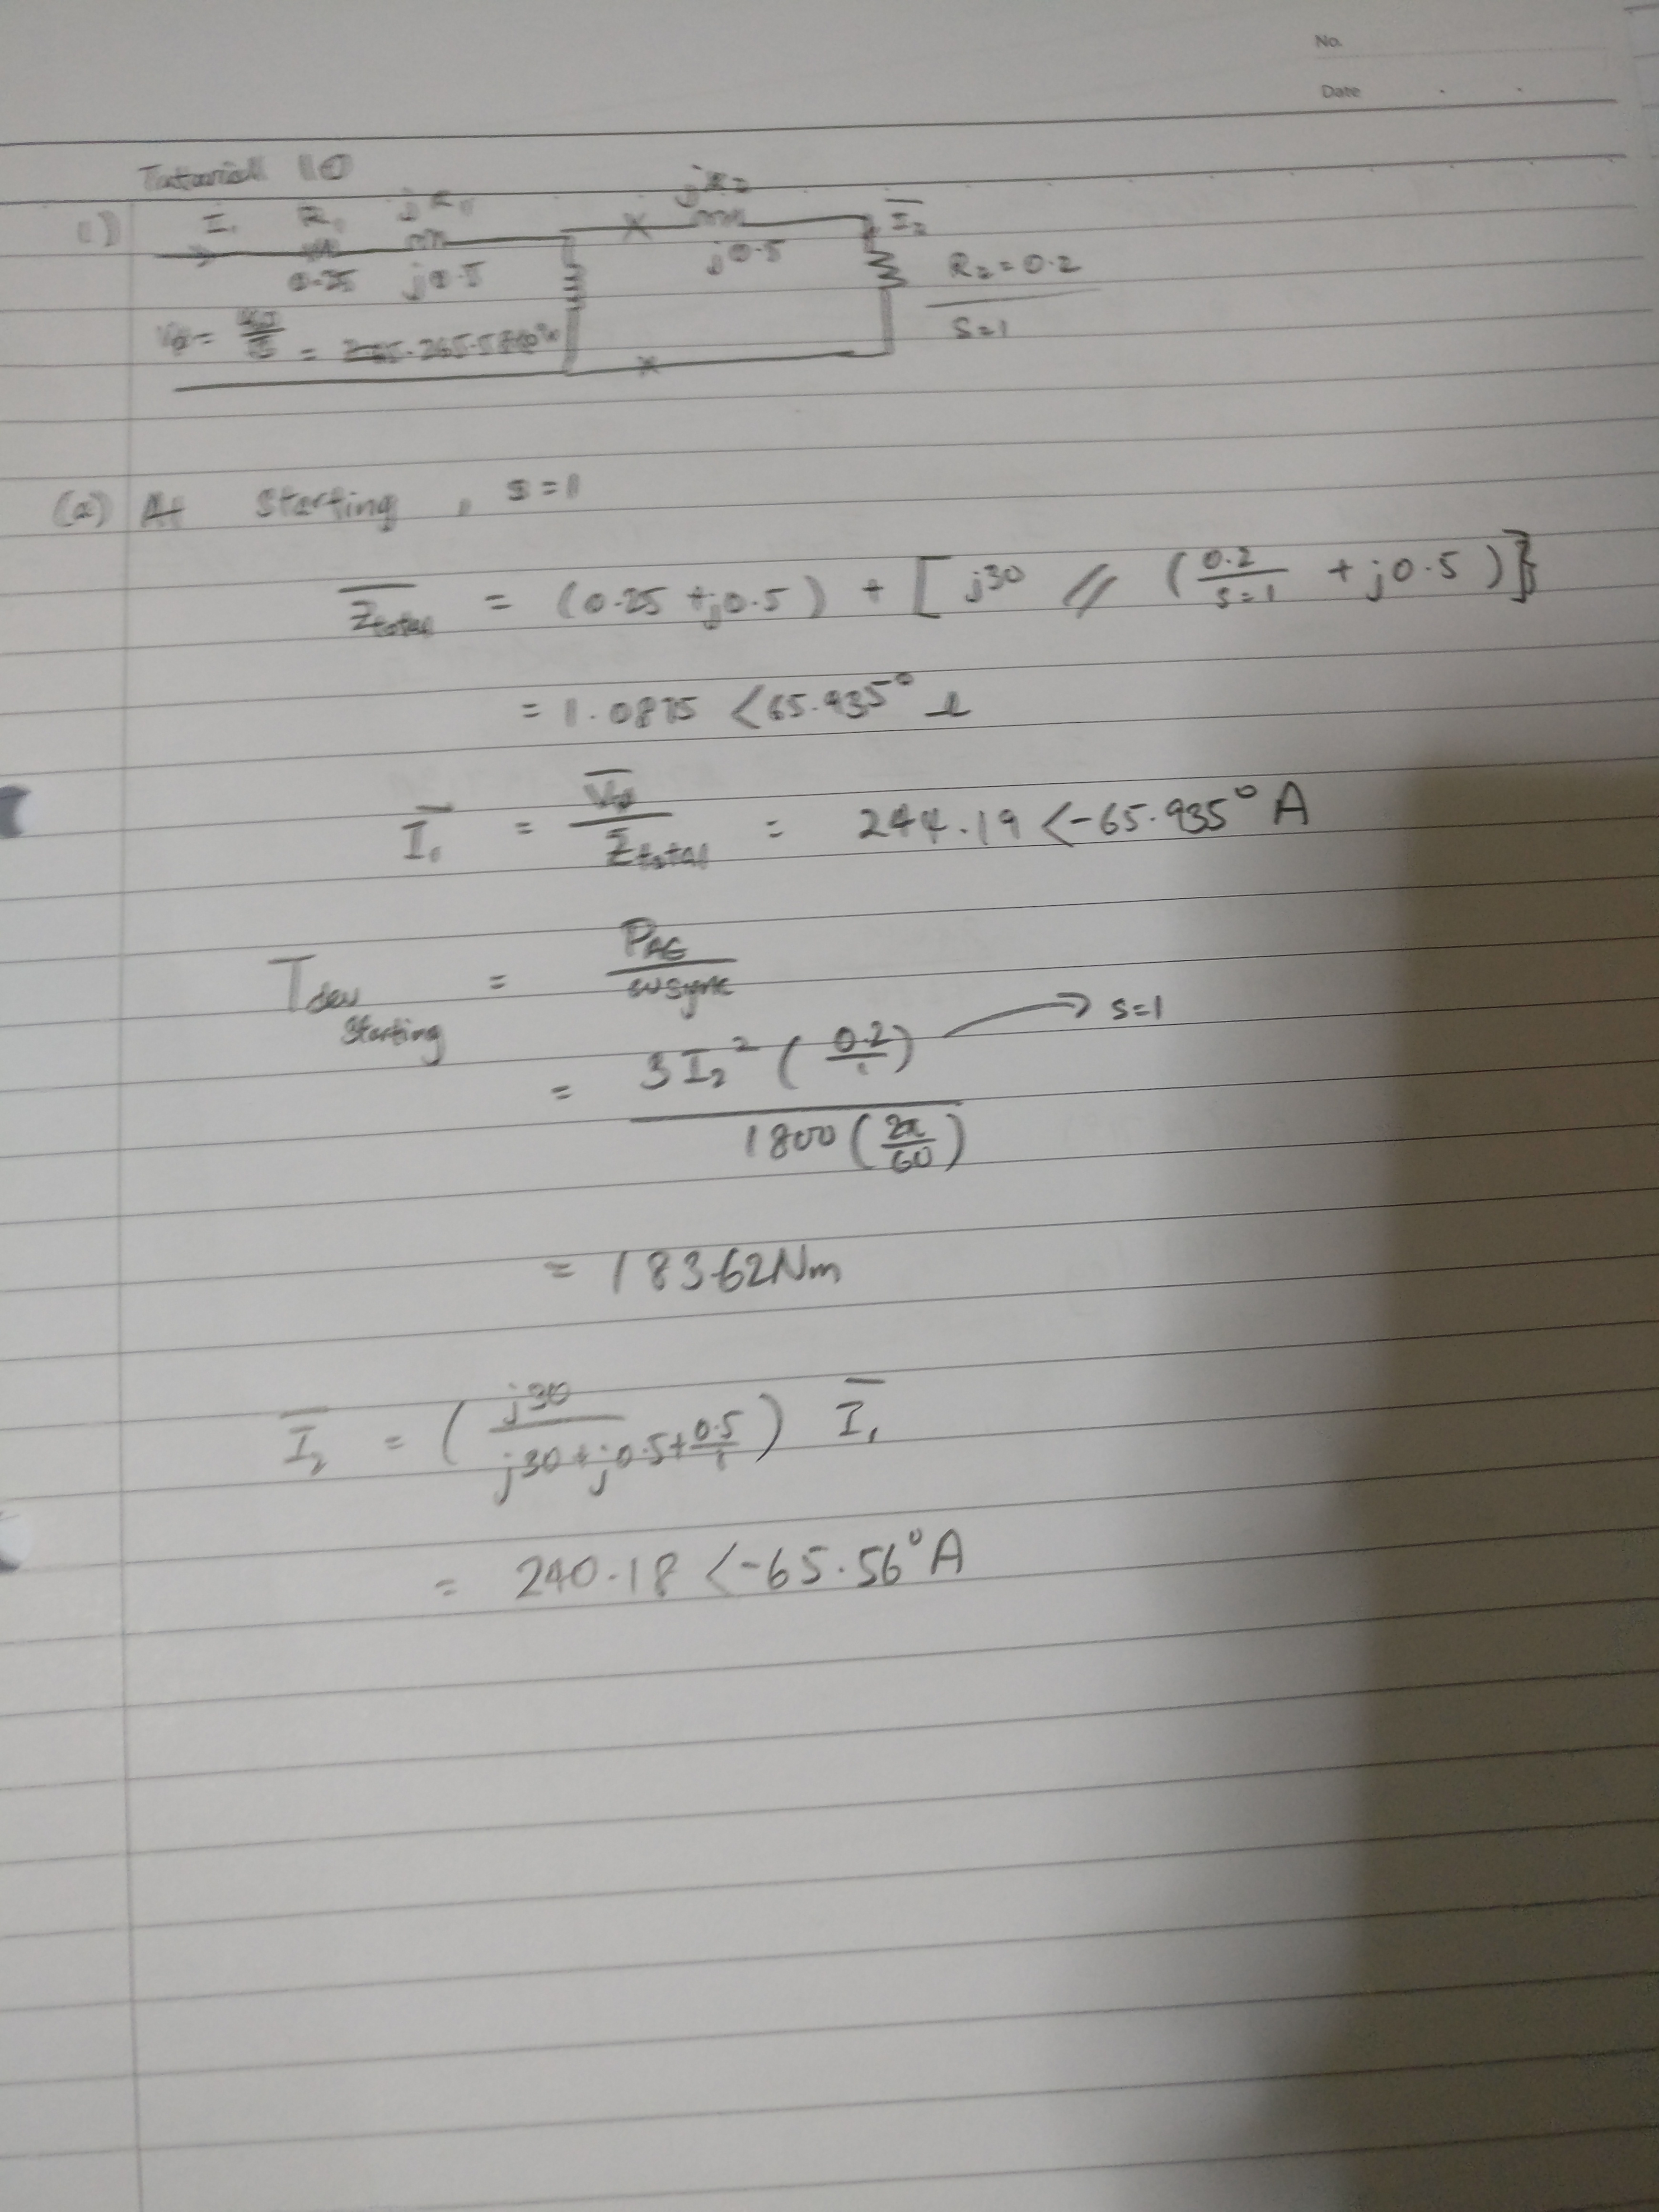 No.
Date
Tutorial 10
1) I₁ R₁ jX₁ jX₂ I₂
0.25 j0.5 j0.5 R₂=0.2
S=1
(a) At Starting, s=1
Z̄total = (0.25+j0.5) + [ j30 // (0.2/s=1 + j0.5)}
= 1.0875 <65.935° Ω
Ī₁ = V̄ø/Z̄total = 244.19 <-65.935° A
Tdev Starting = PAG/ωsync
= 3I₂² (0.2/1) → s=1
1800 (2π/60)
= 183.62Nm
Ī₂ = (j30/j30+j0.5+0.5/1) Ī₁
= 240.18 <-65.56° A